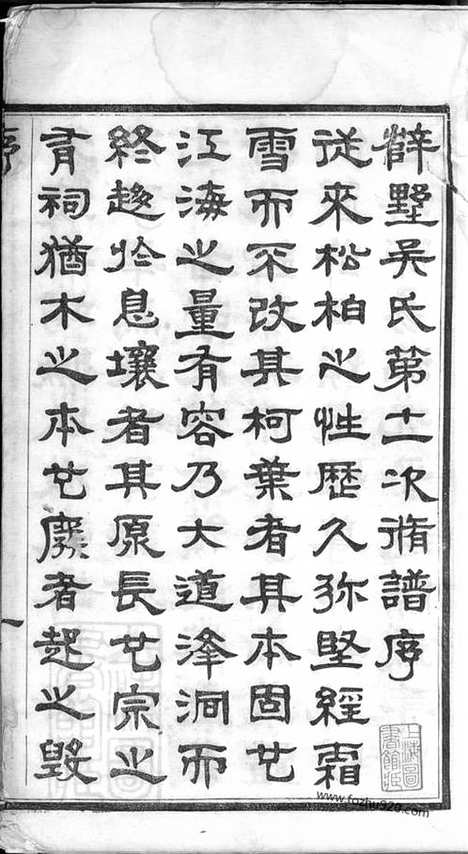 薛墅吳氏第十一次脩譜序
從來松柏之性歷久弥堅經霜
雪而不改其柯葉者其本固也
江海之量有容乃大道洚洞而
終趍於息壤者其原長也宗之
有祠猶木之本也廢者起之毀
序
一
上海圖書館藏
www.fazhu920.com